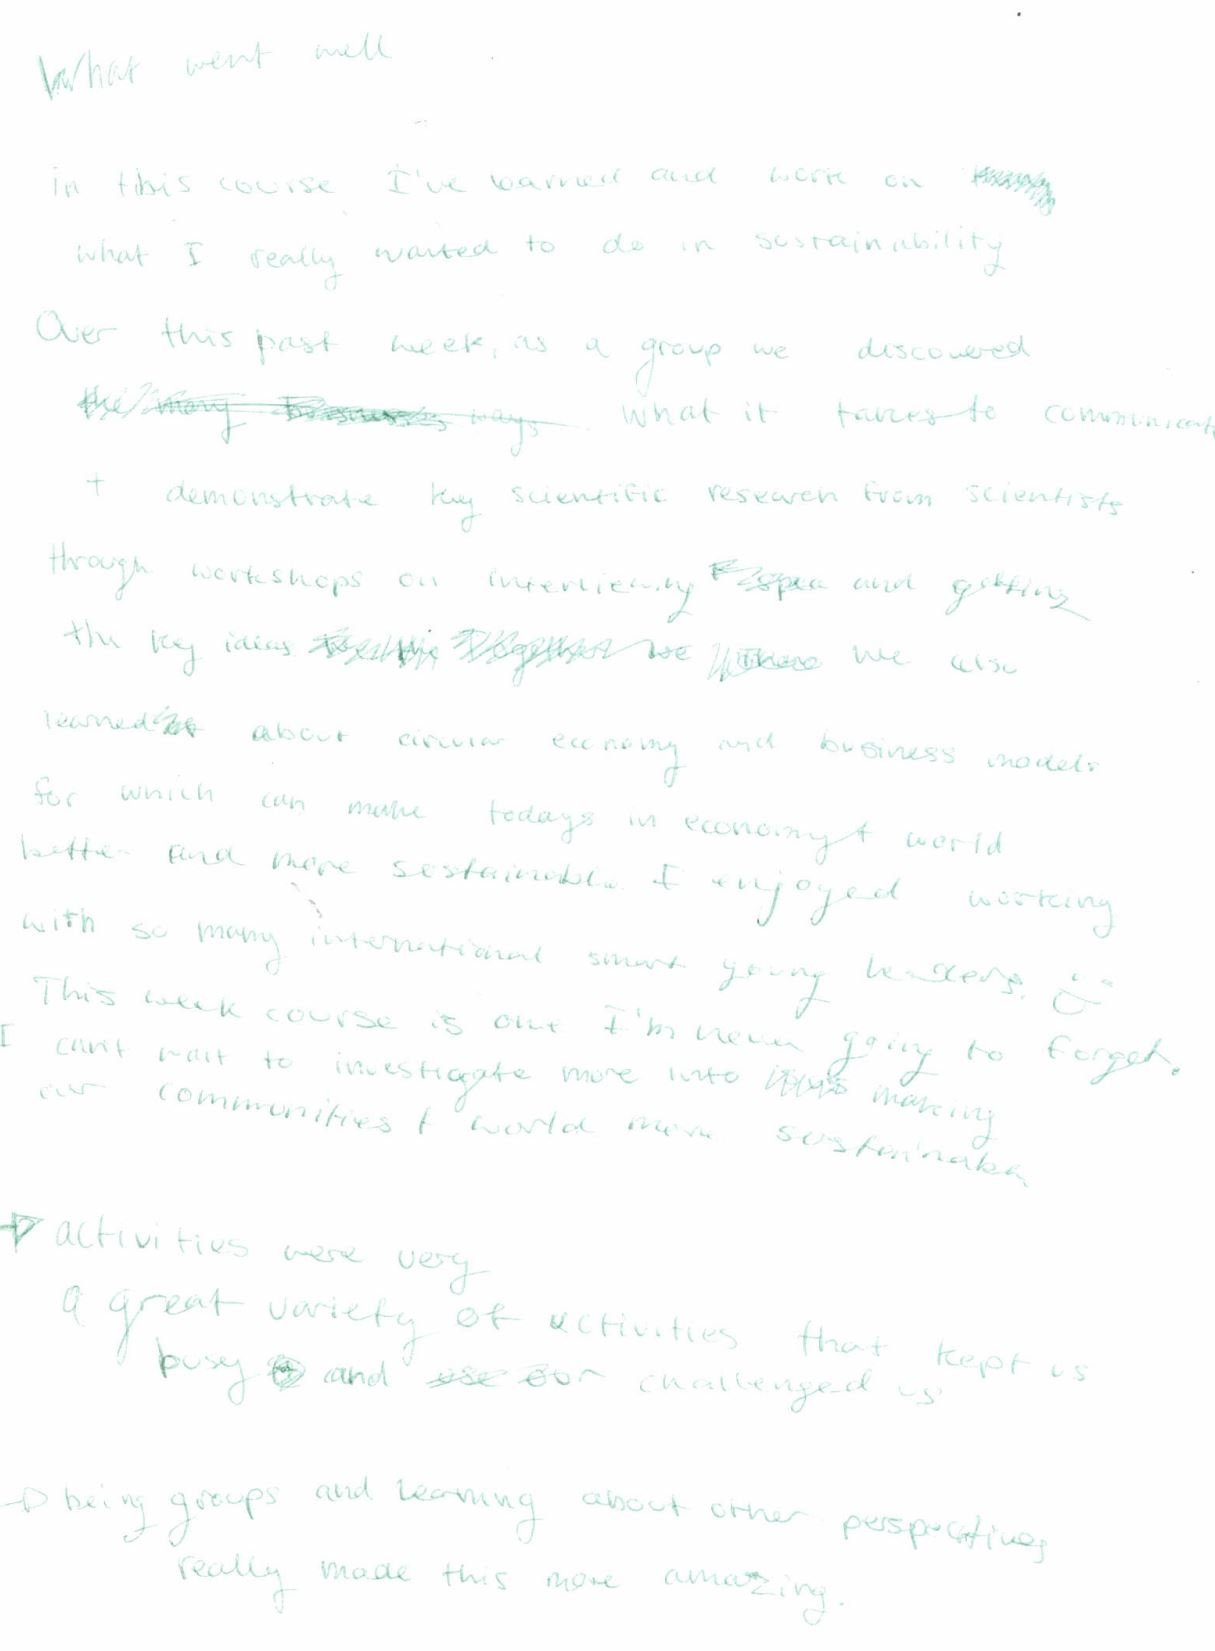 What went well
in this course I've learned and work on
what I really wanted to do in sustainability
Over this past week, as a group we discovered
the many business ways what it takes to communicat
+ demonstrate key scientific research from scientists
through workshops on interviewing and getting
the key ideas we there we also
learned about circular economy and business models
for which can make todays in economy + world
better and more sestainable. I enjoyed working
with so many international smart young leaders. :)
This week course is one I'm never going to forget.
I can't wait to investigate more into making
our communities + world more sustainable
→ activities were very
a great variety of activities that kept us
busy and use our challenged us
→ being groups and learning about other perspectives
really made this more amazing.